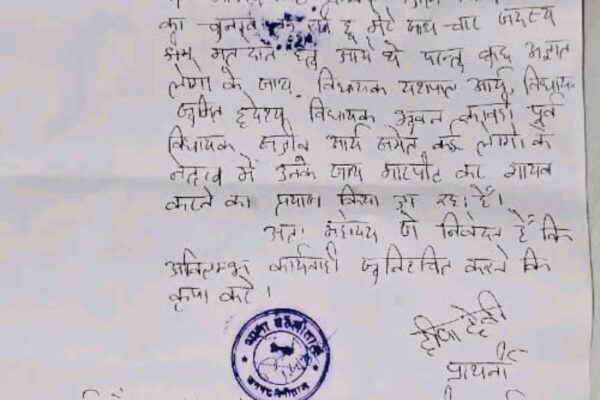 का चुनाव लड़ रही हूं मेरे साथ चार जदस्य
मतदान हेतु आये थे परन्तु कुछ अज्ञात
लोगो के जाथ विधायक यशपाल आर्य, विधायक
सुमित हृदयेश विधायक भुवन कापड़ी पूर्व
विधायक संजीव आर्य समेत कई लोगो के
नेतृत्व में उनके जाथ मारपीट कर गायब
करने का प्रयास किया जा रहा है।
अतः महोदय से निवेदन है कि
अविलम्ब कार्यवाही सुनिश्चित करने कि
कृपा करे।
दीपा
प्रार्थनी